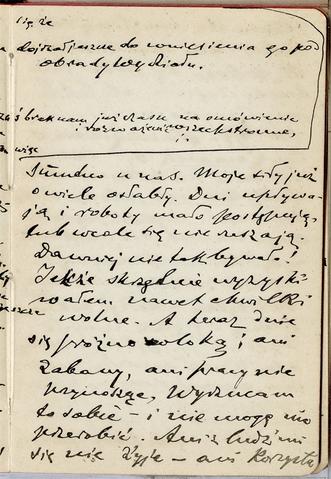 się że
dojrzałe
do wniesienia go pod
obrady wydziału.
brak nam już czasu na omówienie
i rozważenie
więc
Smutno u nas. Moje siły już
o wiele osłabły. Dni upływa-
ją i roboty mało postępują,
lub wcale się nie ruszają.
Dawniej nie tak bywało!
Jakże skrzętnie wyzyski-
wałem nawet chwilki
wolne. A teraz dnie
się próżno wloką i ani
zabawy, ani pracy nie
przynoszą. Wyrzucam
to sobie – i nie mogę nic
przerobić. Ani z ludźmi
się nie żyje – ani korzysta